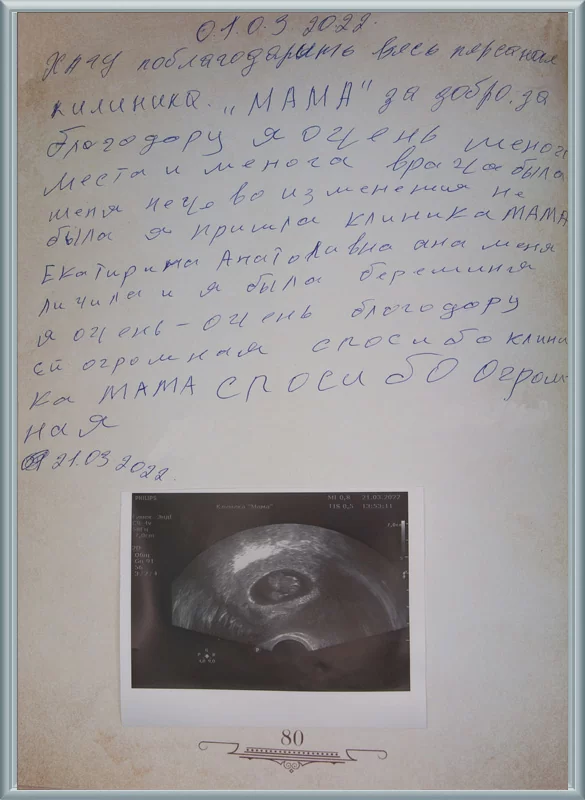 01.03 2022.
ХАчу поблагодарить весь персанал
килиника. „МАМА" за добро. за
благодару я очень меного
места и менога врача была
меня нечево изменения не
была я пришла клиника МАМА
Екатирина Анатолавна ана меня
личила и я была беремина
я очень-очень благодару
ей огромная спосибо клини
ка МАМА СПОСИБО Огром
ная
21.03 2022.
PHILIPS
Клиника "Мама"
21.03.2022
TIB 0,5 13:53:11
80